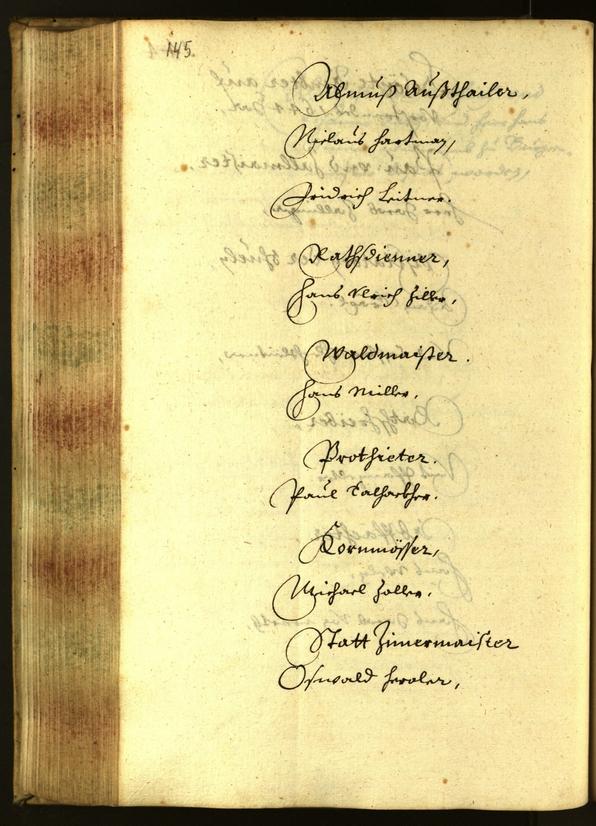 145.
Almuß Außthailer,
Niclaus Hartman,
Fridrich Leitner.
Rathsdienner,
Hans Ulrich Ziller,
Waldmaister.
Hans Miller.
Prothieter.
Paul
Kornmösser,
Michael Zoller.
Statt Zimermaister
Oswald